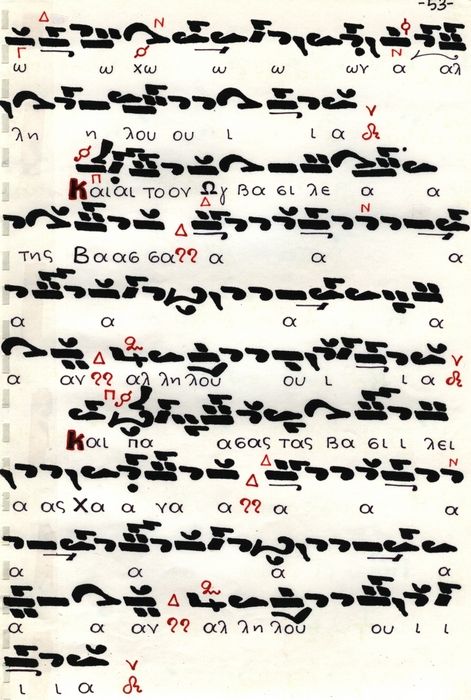 -53-
ω ω χω ω ω ων α αλ
λη η λου ου ι ι α
Και αι το ον Ωγ βα σι λε α α
της Βα ας σα α α α
α α α α
α αν αλ λη λου ου ι ι α
Και πα ασας τας βα σι ι λει
α ας Χα α να α α α
α α α α
α α αν αλ λη λου ου ι ι
ι ι α